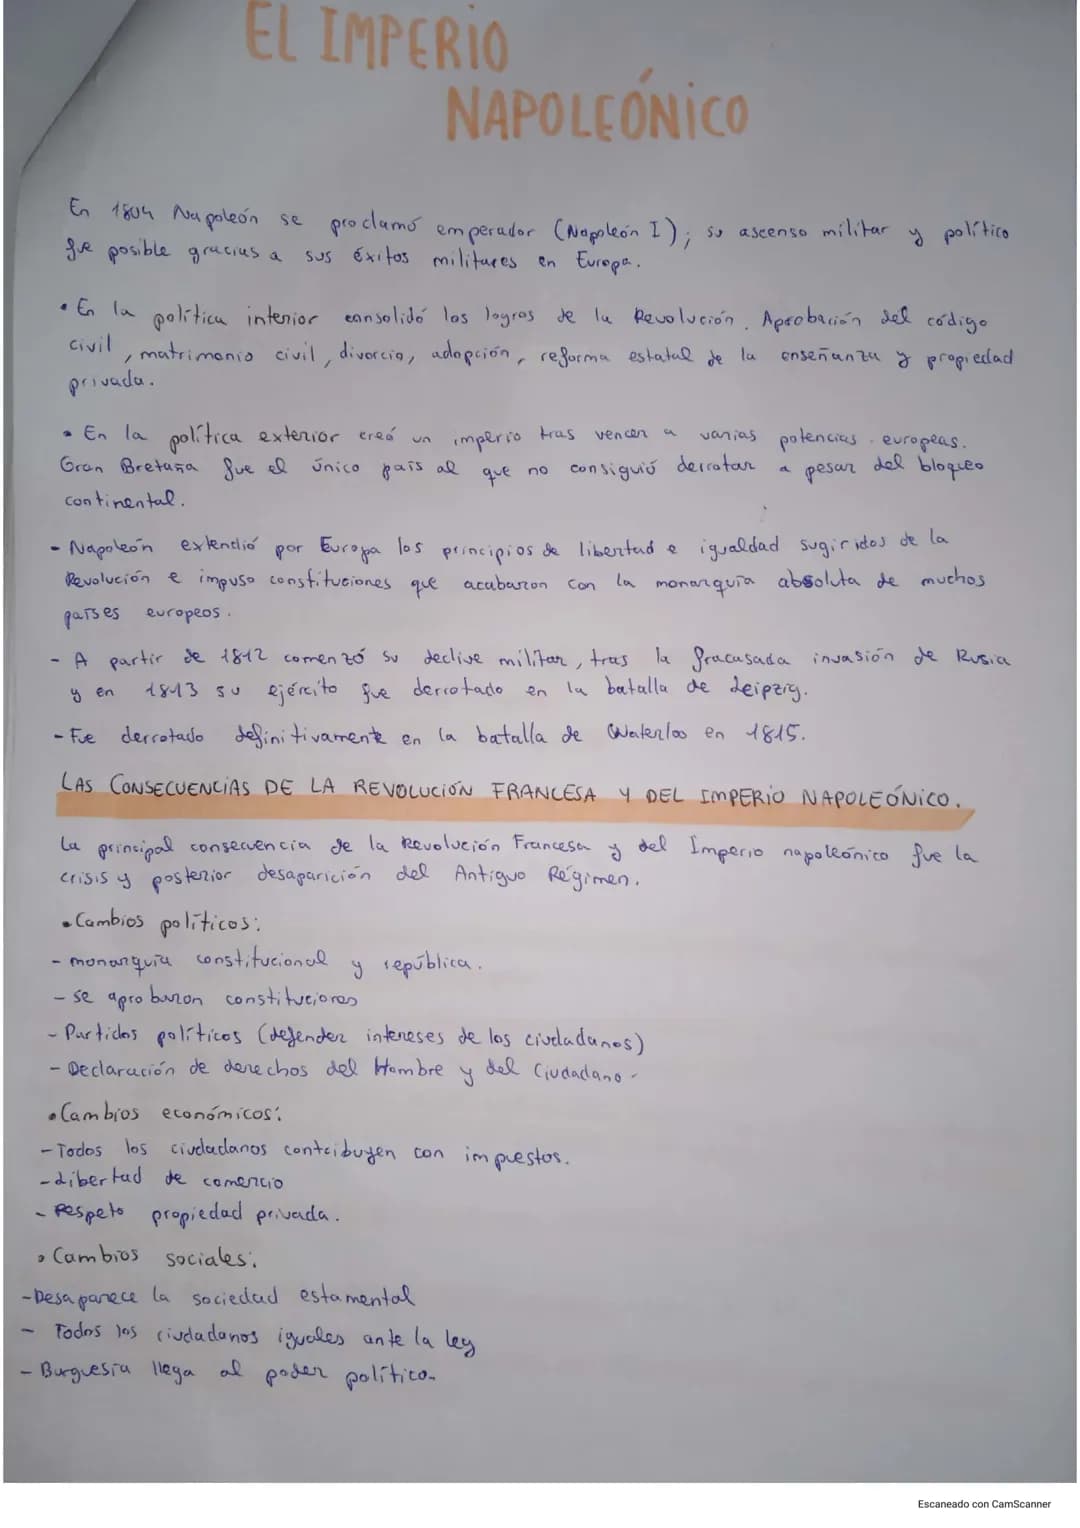 EL IMPERIO
NAPOLEÓNICO
En 1804 Napoleón se proclamó emperador (Napoleón I); su ascenso militar y político
fue posible gracias a sus éxitos militares en Europa.
• En la política interior consolidó los logros de la Revolución. Aprobación del código
civil, matrimonio civil, divorcio, adopción, reforma estatal de la enseñanza y propiedad
privada.
• En la política exterior creó un imperio tras vencer a varias potencias europeas.
Gran Bretaña fue el único país al que no consiguió derrotar a pesar del bloqueo
continental.
- Napoleón extendió por Europa los principios de libertad e igualdad sugiridos de la
Revolución e impuso constituciones que acabaron con la monarquía absoluta de muchos
países europeos.
- A partir de 1812 comenzó su declive militar, tras la fracasada invasión de Rusia
y en 1813 su ejército fue derrotado en la batalla de Leipzig.
- Fue derrotado definitivamente en la batalla de Waterloo en 1815.
LAS CONSECUENCIAS DE LA REVOLUCIÓN FRANCESA Y DEL IMPERIO NAPOLEÓNICO.
La principal consecuencia de la Revolución Francesa y del Imperio napoleónico fue la
crisis y posterior desaparición del Antiguo Régimen.
• Cambios políticos:
- monarquía constitucional y república.
- se aprobaron constituciones
- Partidos políticos (defender intereses de los ciudadanos)
- Declaración de derechos del Hombre y del Ciudadano-
• Cambios económicos:
- Todos los ciudadanos contribuyen con impuestos.
- Libertad de comercio
- Respeto propiedad privada.
• Cambios sociales:
- Desaparece la sociedad estamental
- Todos los ciudadanos iguales ante la ley
- Burguesía llega al poder político.
Escaneado con CamScanner